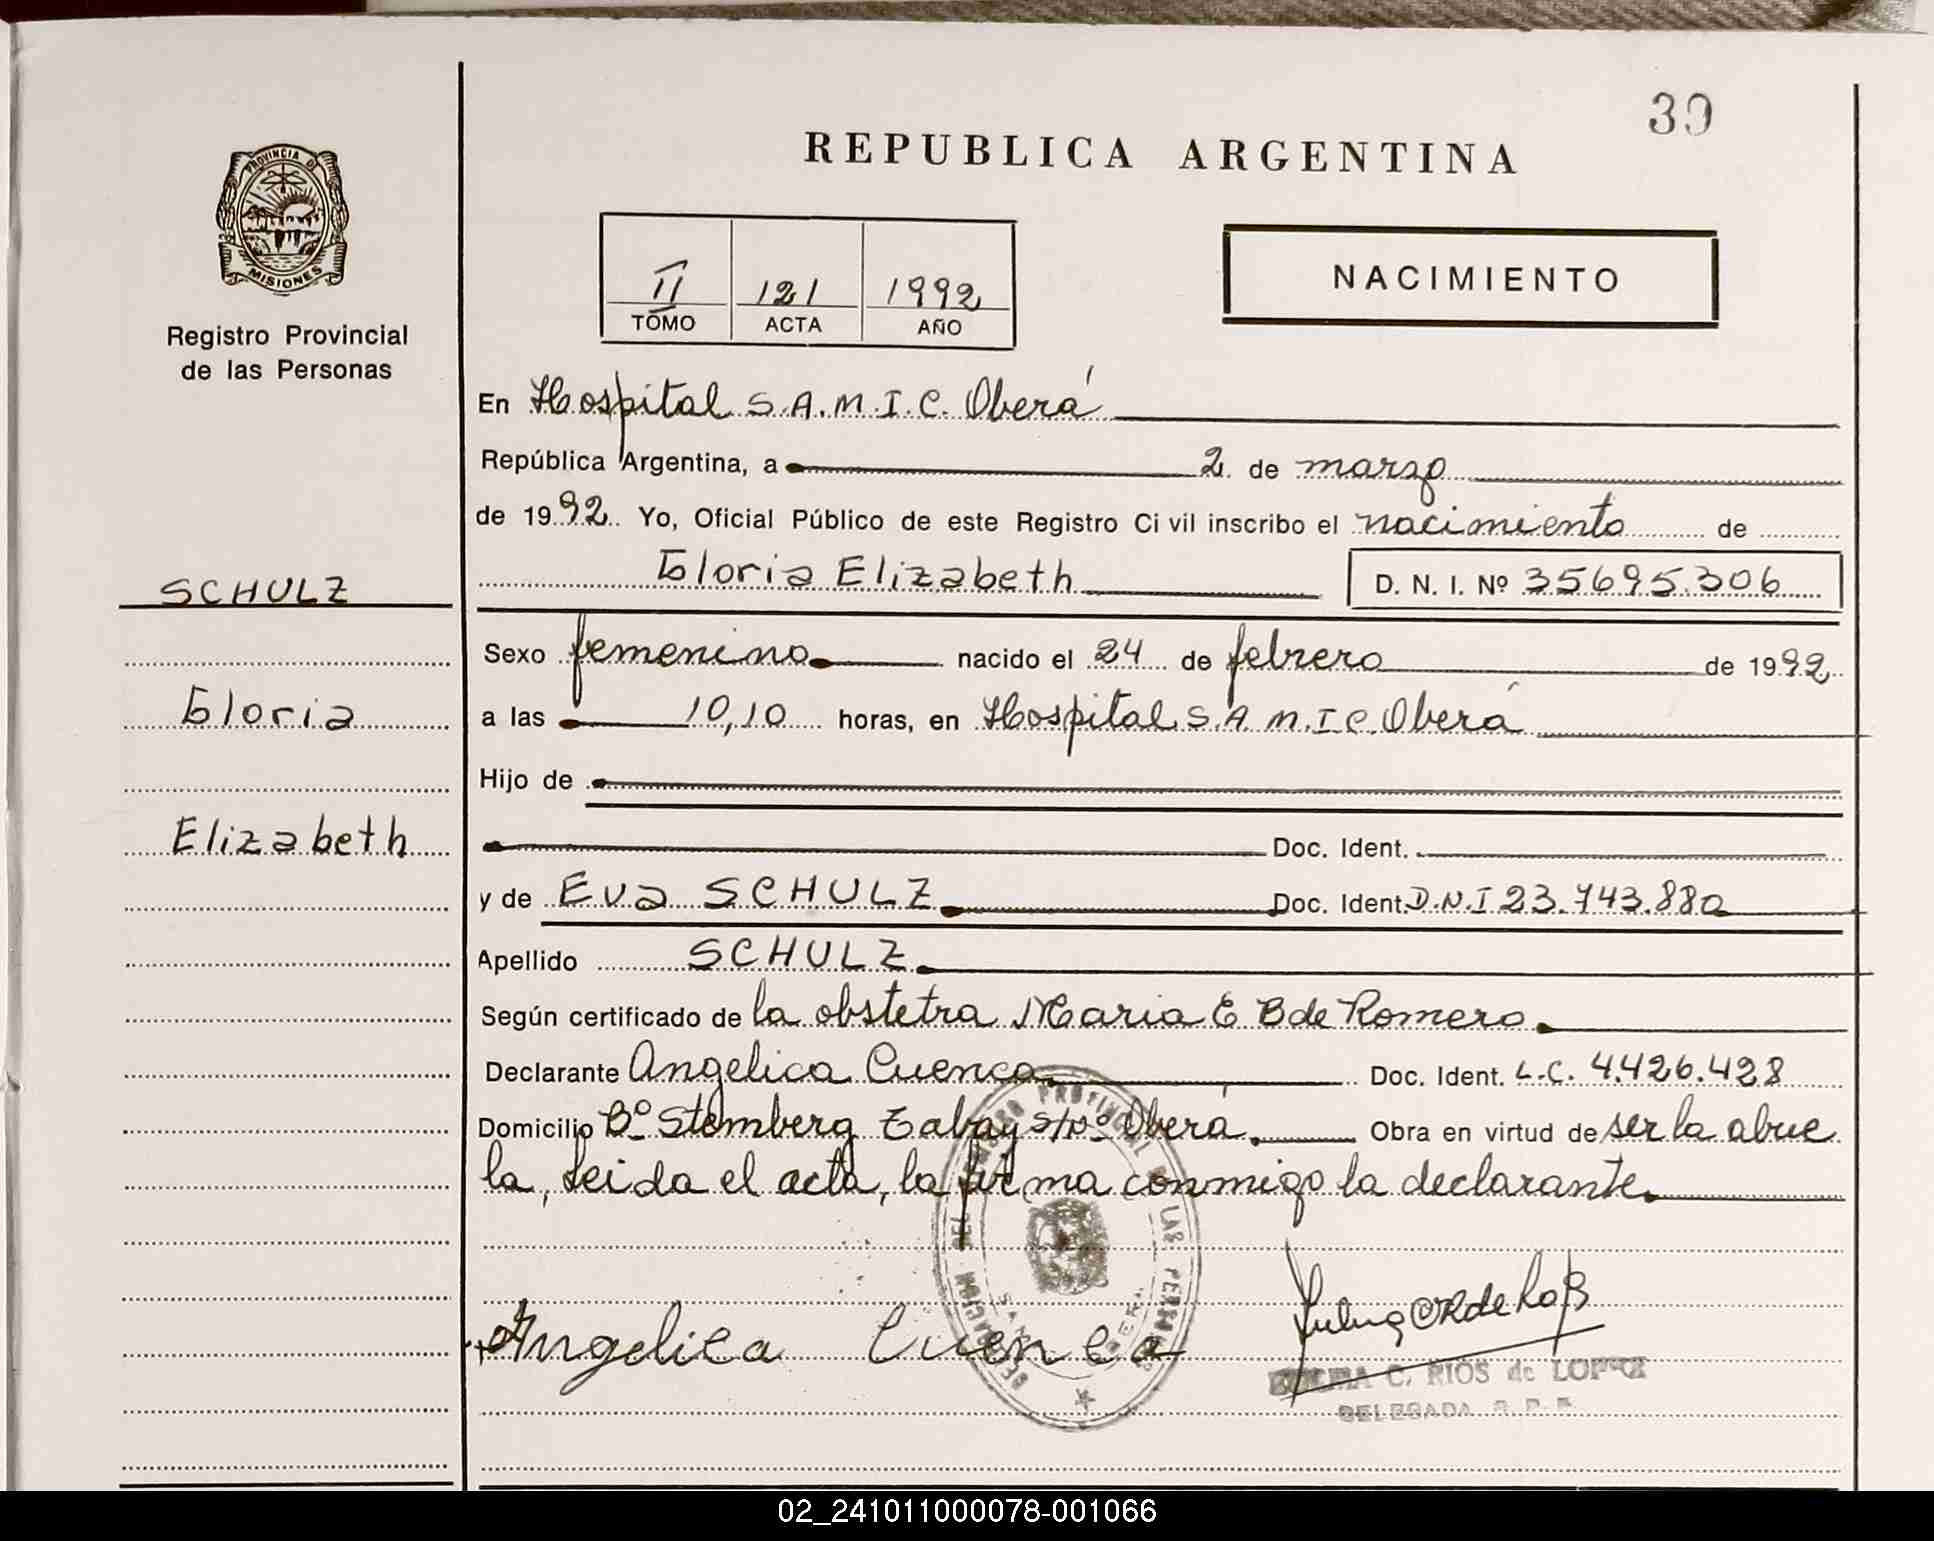 39
REPUBLICA ARGENTINA
PROVINCIA DE
MISIONES
Registro Provincial
de las Personas
II 121 1992
TOMO ACTA AÑO
NACIMIENTO
En Hospital S.A.M.I.C. Oberá
República Argentina, a 2 de marzo
de 1992 Yo, Oficial Público de este Registro Civil inscribo el nacimiento de
SCHULZ
Gloria Elizabeth D. N. I. Nº 35695.306
Sexo femenino nacido el 24 de febrero de 1992
Gloria
a las 10,10 horas, en Hospital S.A.M.I.C. Oberá
Hijo de
Elizabeth
Doc. Ident.
y de Eva SCHULZ Doc. Ident. D.N.I 23.743.880
Apellido SCHULZ
Según certificado de la obstetra Maria E B de Romero
Declarante Angelica Cuenca Doc. Ident. L.C. 4.426.428
Domicilio Bº Stemberg Tabay s/Nº Oberá. Obra en virtud de ser la abue
la, leida el acta, la firma conmigo la declarante.
Angelica Cuenca
C. RIOS de LOPEZ
DELEGADA R. P. P.
02_241011000078-001066